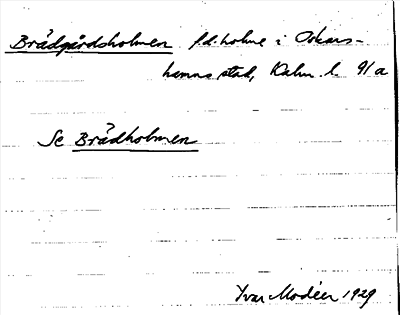 Brädgårdsholmen f.d. holme i Oskars-
hamns stad, Kalm. l. 9/a
Se Brädholmen
Yvar Modéer 1929